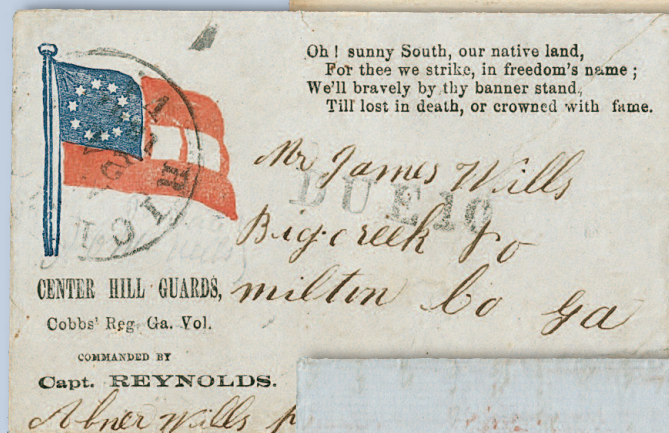 Oh ! sunny South, our native land,
For thee we strike, in freedom's name ;
We'll bravely by thy banner stand,
Till lost in death, or crowned with fame.
Mr James Wills
DUE 10
Big creek Po
milton Co Ga
CENTER HILL GUARDS,
Cobbs' Reg. Ga. Vol.
COMMANDED BY
Capt. REYNOLDS.
Abner Wills